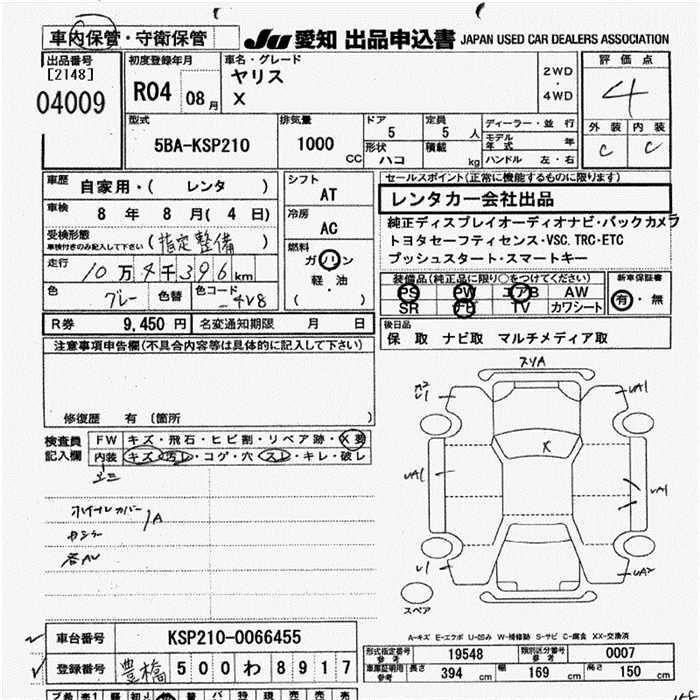 車内保管・守衛保管 JU 愛知 出品申込書 JAPAN USED CAR DEALERS ASSOCIATION
出品番号 [2148] 04009
初度登録年月 R04 08月
車名・グレード ヤリス X
2WD・4WD
評価点 4
外装 C 内装 C
型式 5BA-KSP210
排気量 1000 CC
ドア 5 形状 ハコ
定員 5人 積載 kg
ディーラー・並行
モデル年式 年
ハンドル 左・右
車歴 自家用・( レンタ )
車検 8年 8月( 4日)
受検形態 車検付きのみ記入して下さい (指定整備)
走行 10万4千396km
色 グレー 色替 色コード 4V8
シフト AT
冷房 AC
燃料 ガソリン 軽・油 ( )
セールスポイント(正常に機能するものに限ります)
レンタカー会社出品
純正ディスプレイオーディオナビ・バックカメラ
トヨタセーフティセンス・VSC. TRC・ETC
プッシュスタート・スマートキー
装備品(純正品に限り○をつけてください) 新車保証書
PS PW エアB AW 有・無
SR TV カワシート
R券 9,450円 名変通知期限 月 日
後日品
保 取 ナビ取 マルチメディア取
注意事項申告欄(不具合内容等は具体的に記入して下さい)
修復歴 有 〔箇所 〕
検査員記入欄 FW キズ・飛石・ヒビ割・リペア跡・X要
内装 キズ・汚レ・コゲ・穴・スレ・キレ・破レ
ホイルカバー
A
スリA
UA1
UA1
UA1
X
U1
UA2
スペア
A-キズ E-エクボ U-凹み W-補修跡 S-サビ C-腐食 XX-交換済
車台番号 KSP210-0066455
登録番号 豊橋 500 わ 8917
形式指定番号 参考 19548 類別区分番号 参考 0007
車庫証明用 参考 長さ 394 cm 幅 169 cm 高さ 150 cm